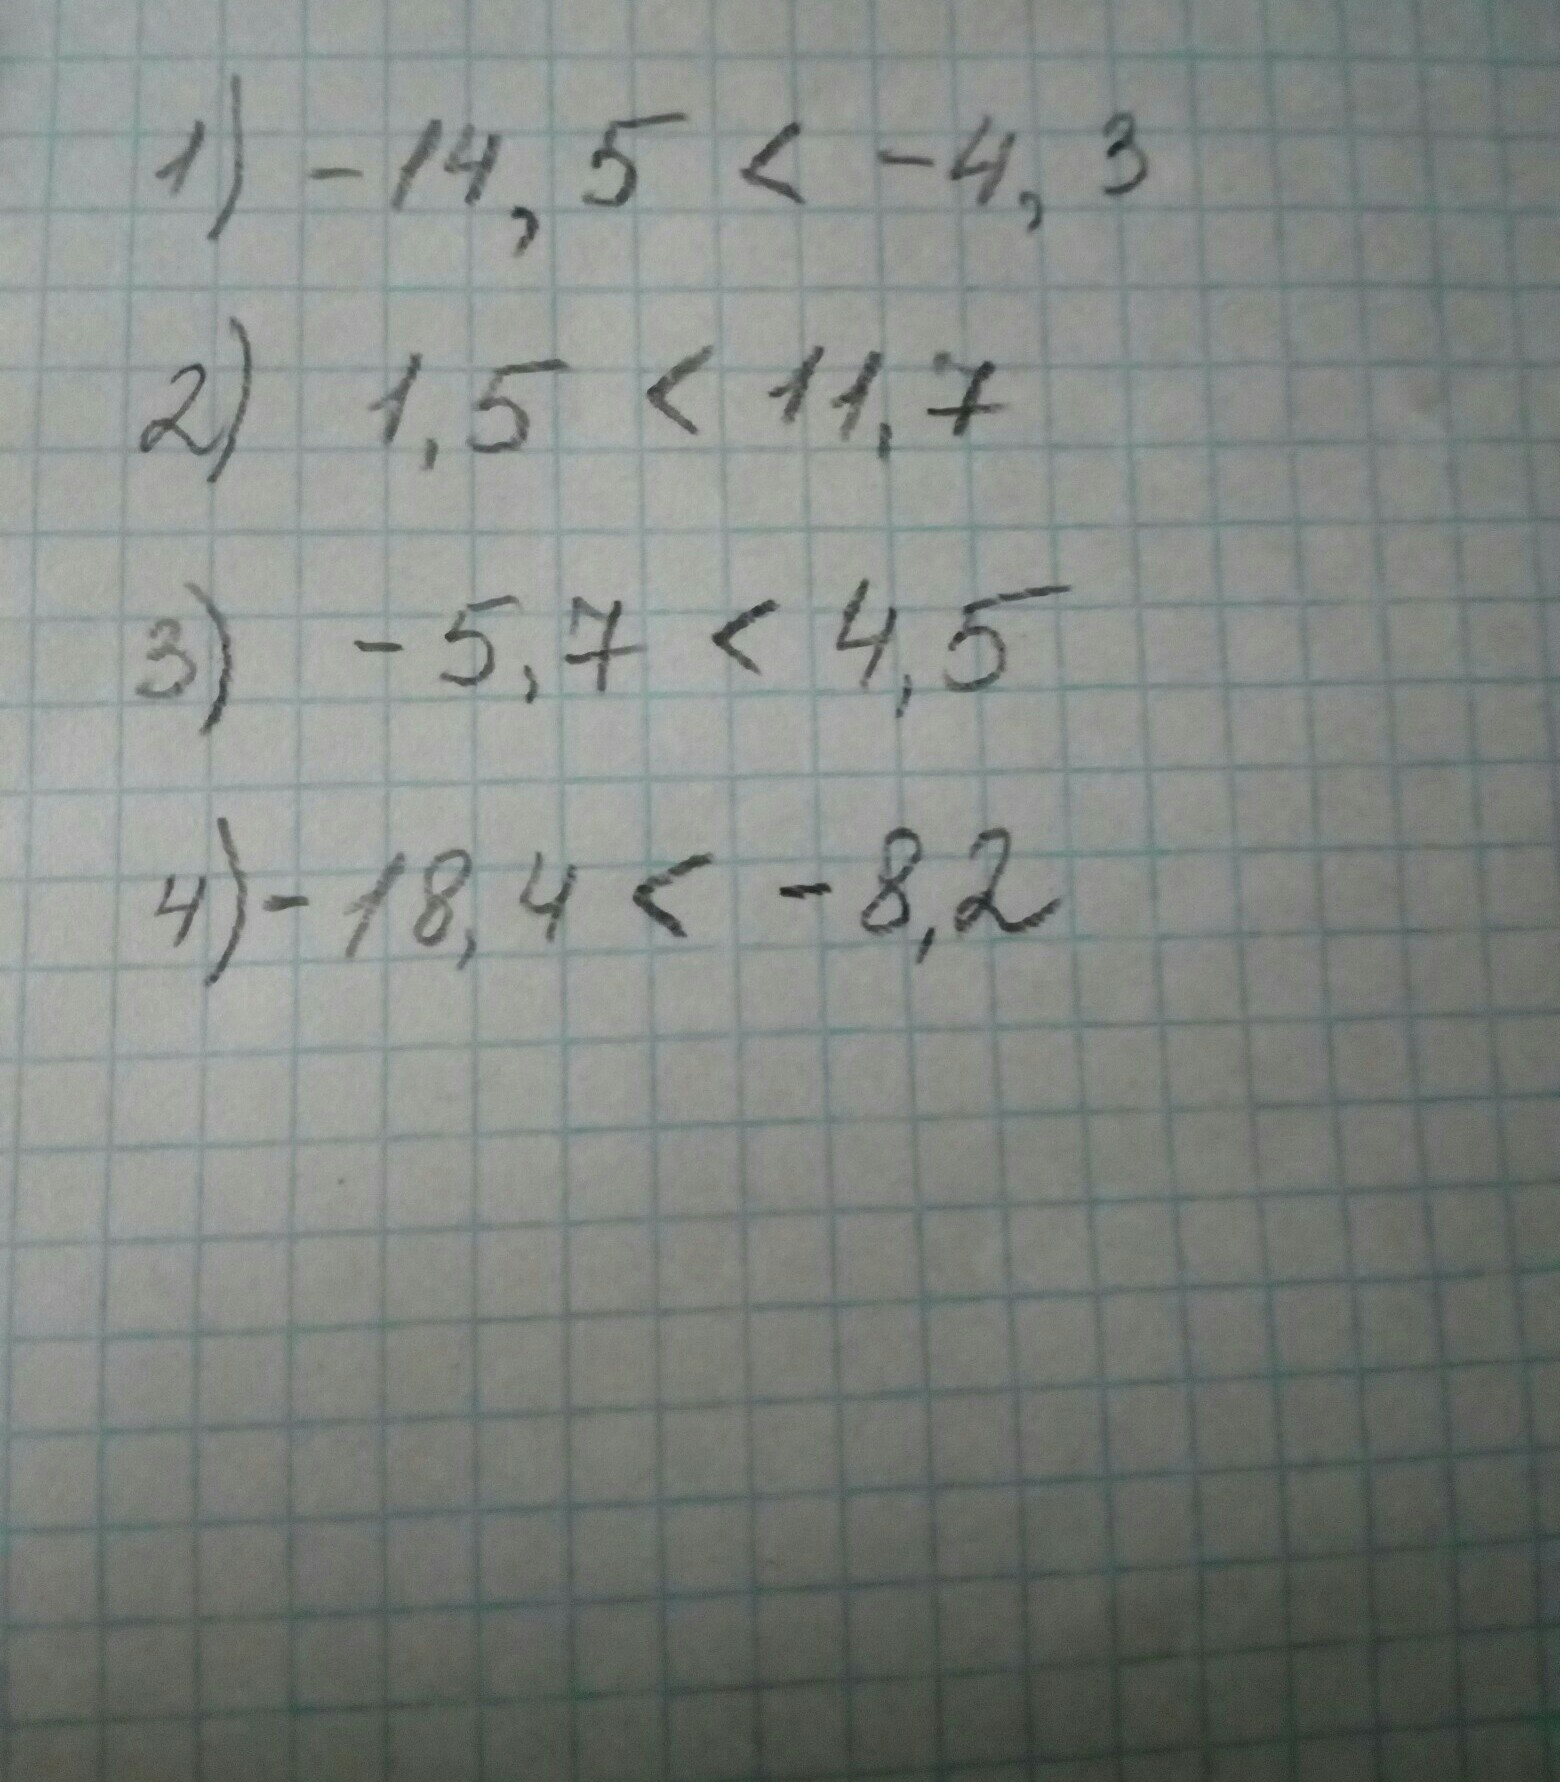 1) -14,5 < -4,3
2) 1,5 < 11,7
3) -5,7 < 4,5
4) -18,4 < -8,2